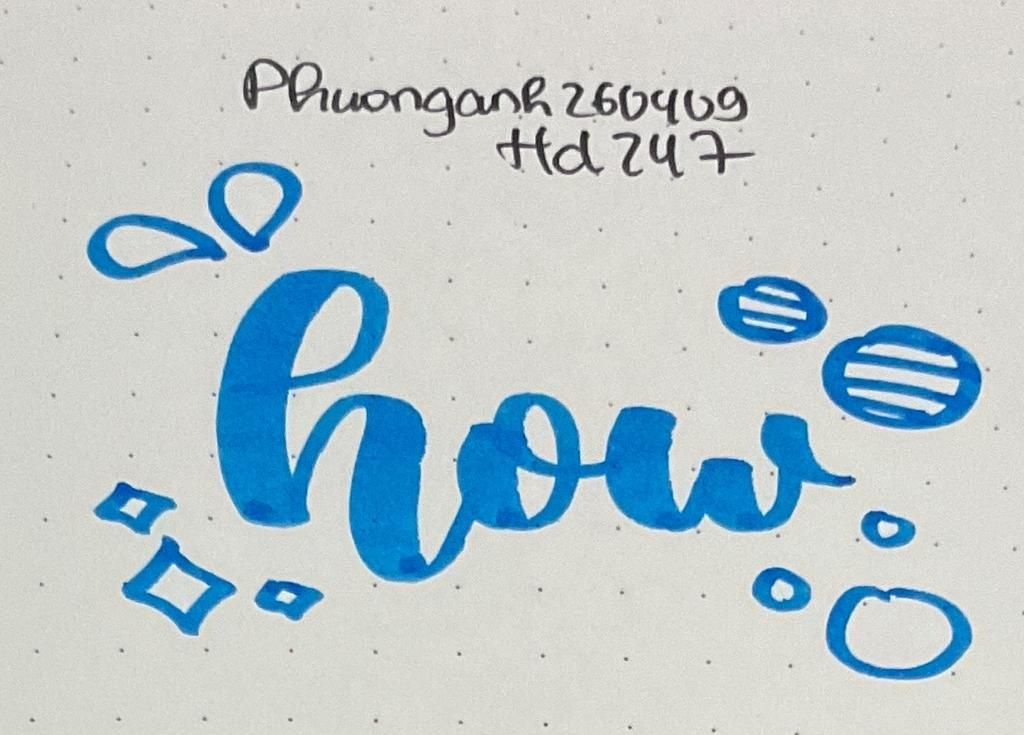 Phuonganh260409
Hd247
how